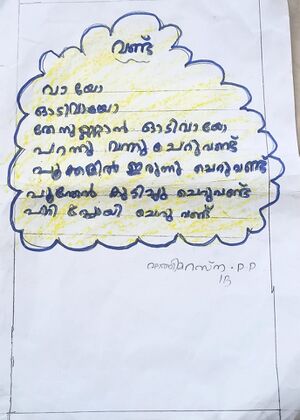 വണ്ട്
വാ യോ
ഓടിവായോ
തേനുണ്ണാൻ ഓടിവായോ
പറന്നു വന്നു ചെറുവണ്ട്
പൂക്കളിൽ ഇരുന്നു ചെറുവണ്ട്
പൂന്തേൻ കുടിച്ചു ചെറുവണ്ട്
പാറി പ്പോയി ചെറു വണ്ട്
P P
1B